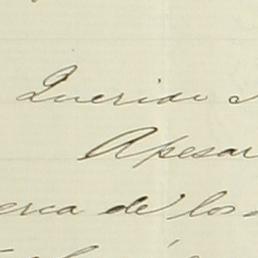 Querido
Apesar
erca de los